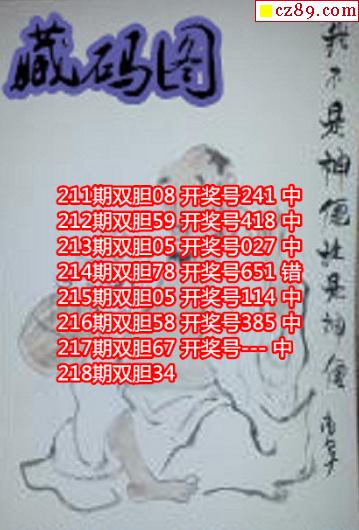 cz89.com
藏码图
211期双胆08 开奖号241 中
212期双胆59 开奖号418 中
213期双胆05 开奖号027 中
214期双胆78 开奖号651 错
215期双胆05 开奖号114 中
216期双胆58 开奖号385 中
217期双胆67 开奖号--- 中
218期双胆34
我不是神便是神仙